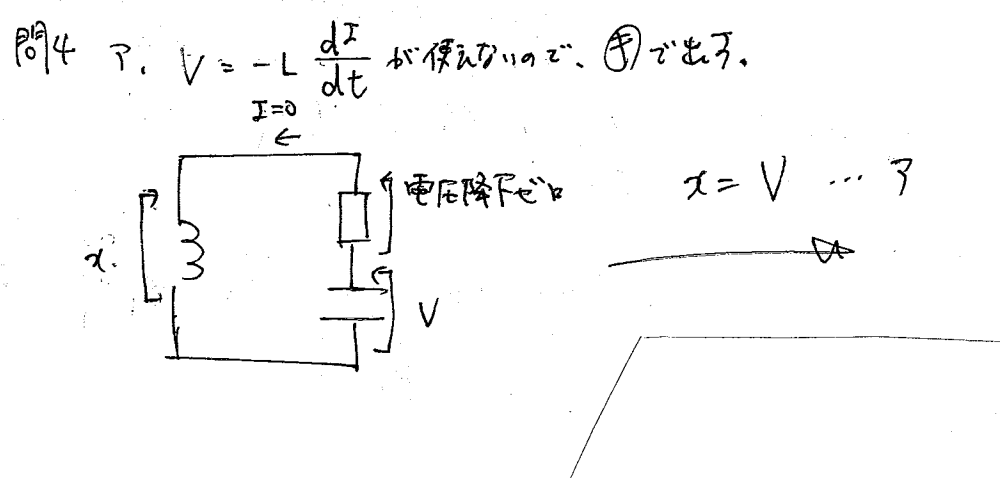 問4 ア. V = -L dI/dt が使えないので、㋖で出す。
I=0
←
電圧降下ゼロ
x = V … ア
x.
V